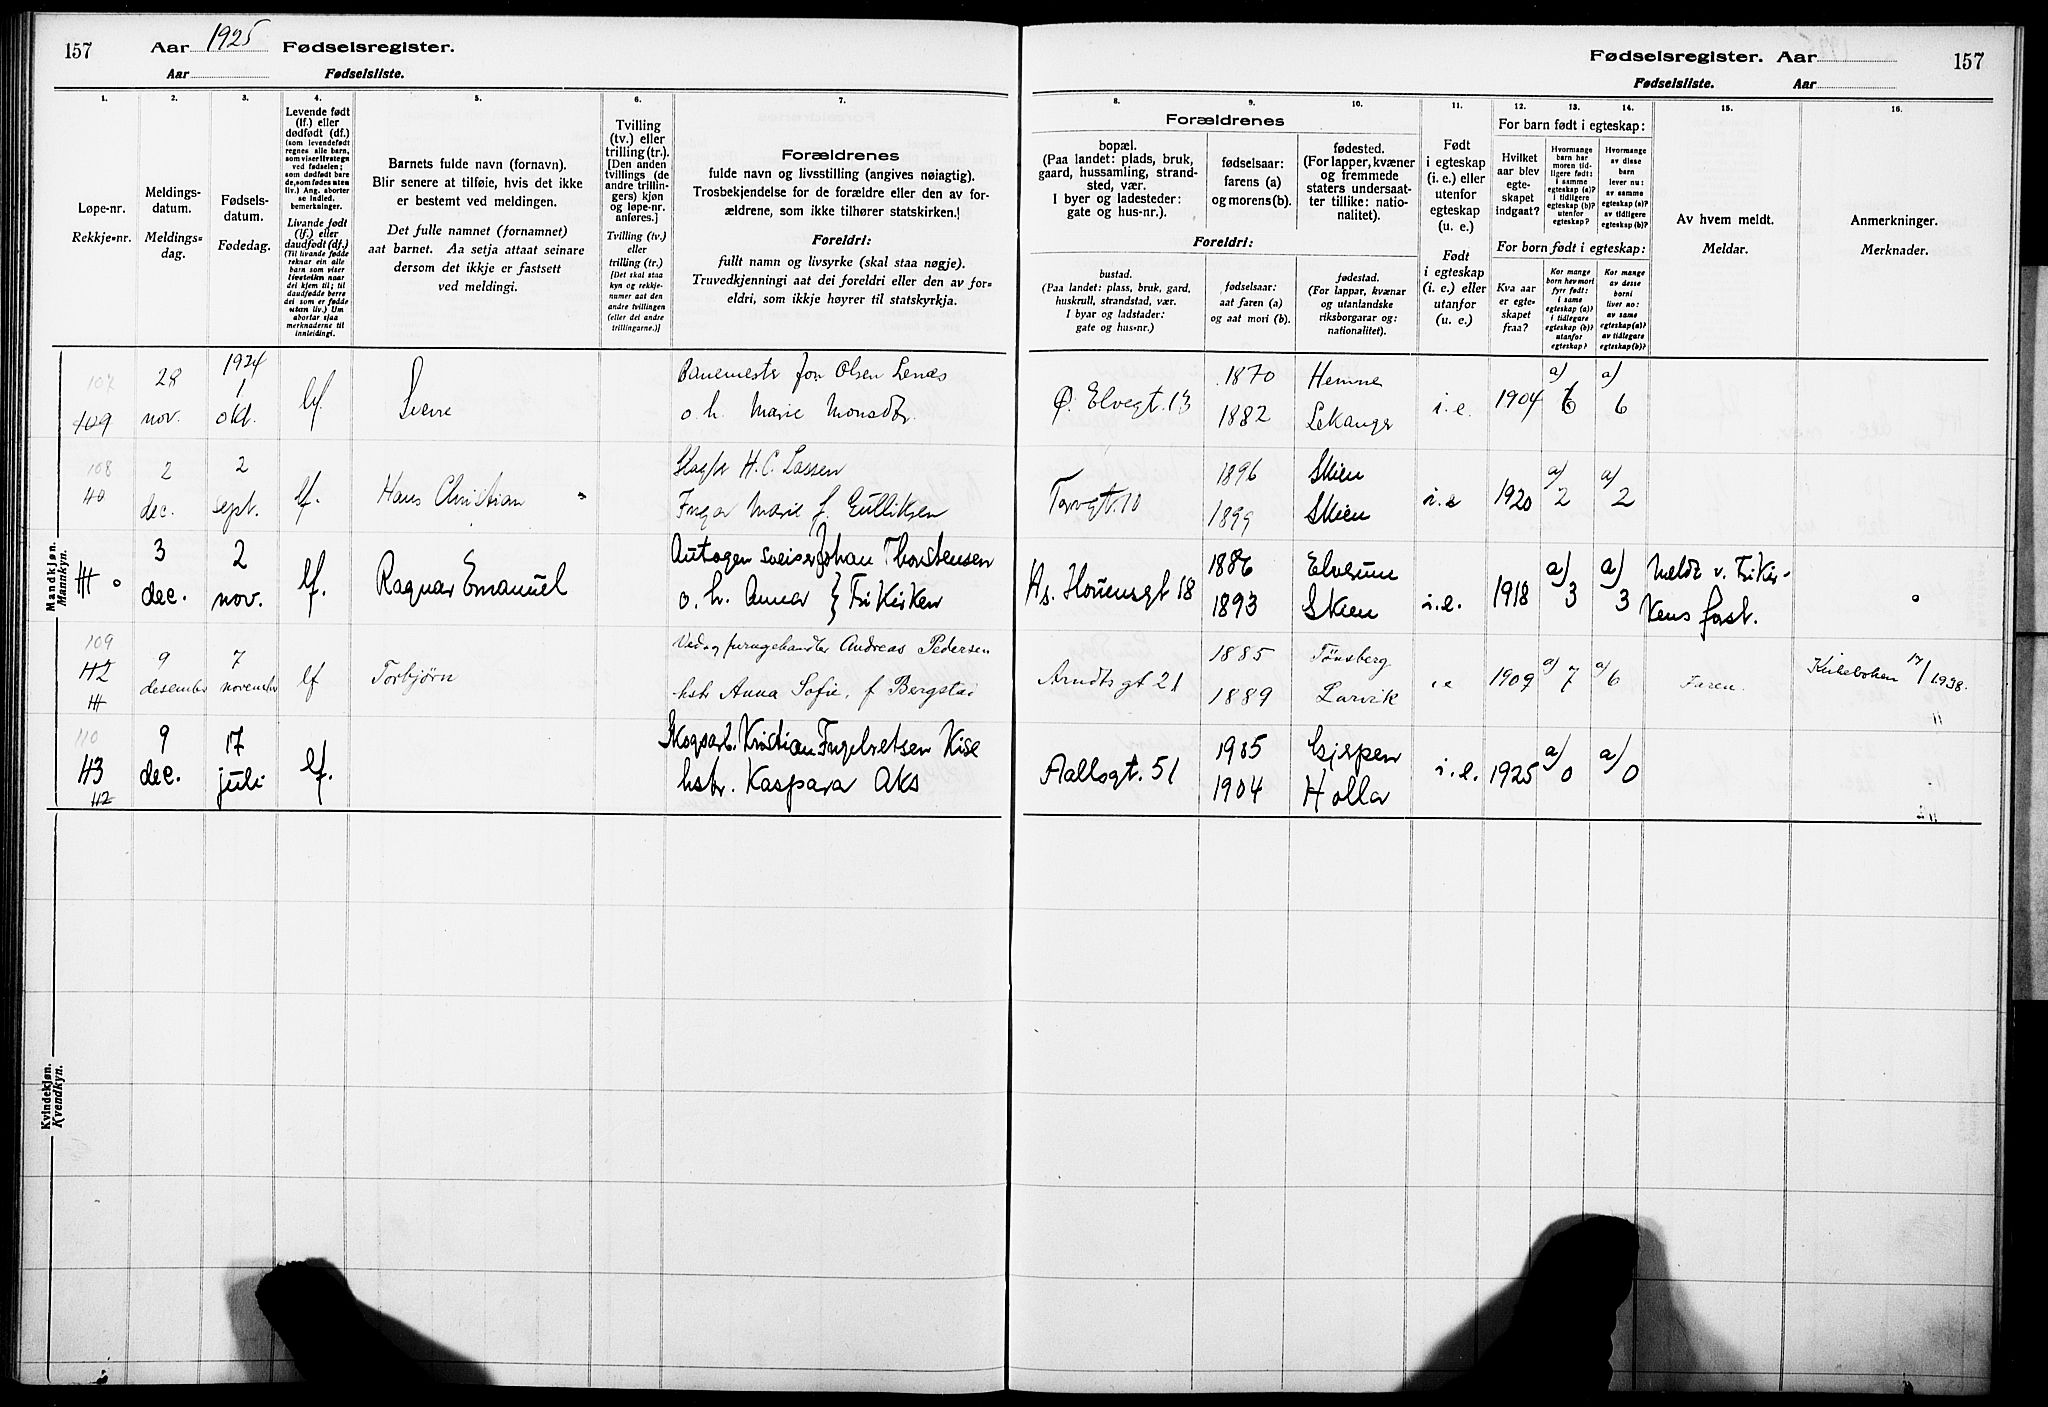 157
Aar 1925 Fødselsregister.
Aar Fødselsliste.
Fødselsregister. Aar
157
Fødselsliste. Aar
1.
Løpe-nr.
Rekkje-nr.
2.
Meldings-
datum.
Meldings-
dag.
3.
Fødsels-
datum.
Fødedag.
4.
Levende født
(lf.) eller
dødfødt (df.)
(som levendefødt
regnes alle barn,
som viser livstegn
ved fødselen;
som dødfødt bare
de, som fødes uten
liv.) Ang. aborter
se indled.
bemerkninger.
Livande født
(lf.) eller
daudfødt (df.)
(Til livande fødde
reknar ein alle
barn som viser
livsteikn naar
dei kjem til; til
daudfødde berre
dei som er fødde
utan liv.) Um
abortar sjaa
merknaderne til
innleidingi.
5.
Barnets fulde navn (fornavn).
Blir senere at tilføie, hvis det ikke
er bestemt ved meldingen.
Det fulle namnet (fornamnet)
aat barnet. Aa setja attaat seinare
dersom det ikkje er fastsett
ved meldingi.
6.
Tvilling
(tv.) eller
trilling (tr.).
[Den anden
tvillings (de
andre trillin-
gers) kjøn
og løpe-nr.
anføres.]
Tvilling (tv.)
eller
trilling (tr.)
[Det skal staa
kyn og rekkje-
numer aat den
andre tvillingen
(eller dei andre
trillingarne.)]
7.
Forældrenes
fulde navn og livsstilling (angives nøiagtig).
Trosbekjendelse for de forældre eller den av for-
ældrene, som ikke tilhører statskirken.
Foreldri:
fullt namn og livsyrke (skal staa nøgje).
Truvedkjenningi aat dei foreldri eller den av for-
eldri, som ikkje høyrer til statskyrkja.
Forældrenes
Foreldri:
8.
bopæl.
(Paa landet: plads, bruk,
gaard, hussamling, strand-
sted, vær.
I byer og ladesteder:
gate og hus-nr.).
bustad.
(Paa landet: plass, bruk, gard,
huskrull, strandstad, vær.
I byar og ladstader:
gate og hus-nr.)
9.
fødselsaar:
farens (a)
og morens (b).
fødselsaar:
aat faren (a)
og aat mori (b).
10.
fødested.
(For lapper, kvæner
og fremmede
staters undersaat-
ter tillike: natio-
nalitet).
fødestad.
(For lappar, kvænar
og utanlandske
riksborgarar og:
nationalitet).
11.
Født
i egteskap
(i. e.) eller
utenfor
egteskap
(u. e.)
Født
i egteskap
(i. e.) eller
utanfor
(u. e.)
For barn født i egteskap:
For born født i egteskap:
12.
Hvilket
aar blev
egte-
skapet
indgaat?
Kva aar
er egte-
skapet
fraa?
13.
Hvormange
barn har
moren tid-
ligere født:
i samme
egteskap (a)?
i tidligere
egteskap (b)?
utenfor
egteskap?
Kor mange
born hev mori
fyrr født:
i same
egteskap (a)?
i tidlegare
egteskap (b)?
utanfor
egteskap?
14.
Hvormange
av disse
barn
lever nu:
av samme
egteskap (a)?
av tidligere
egteskap (b)?
Kor mange
av desse
borni
liver no:
av same
egteskap (a)?
av tidlegare
egteskap (b)?
15.
Av hvem meldt.
Meldar.
16.
Anmerkninger.
Merknader.
Mandkjøn.
Mannkyn.
107
109 28 nov. 1924 1 okt. lf. Sverre
Banemester Jon Olsen Lenes
o. h. Marie Monsdtr.
Ø. Elvegt. 13 1870 1882 Hemne Lekanger i.e. 1904 a) 6 a) 6
108
40 2 dec. 2 sept. lf. Hans Christian
Slagter H. C. Lassen
Inga Marie f. Gulliksen
Torvgt. 10 1896 1899 Skien Skien i.e 1920 a) 2 a) 2
41 3 dec. 2 nov. lf. Ragnar Emanuel
Autogen sveiser Johan Thorstensen
o. h. Anna } Frikirken
Hs. Houensgt 18 1886 1893 Elverum Skien i.e. 1918 a) 3 a) 3 Meldt v. Frikir-
kens forst.
109
42
41 9 desember 7 november lf Torbjørn
Ved og furugehandler Andreas Pedersen
hstr Anna Sofie, f Bergstad
Arndtsgt 21 1885 1889 Tønsberg Larvik i e 1909 a) 7 a) 6 Faren. Kirkeboken 17/1 1938.
110
43
42 9 dec. 17 juli lf.
Skogsarb. Kristian Ingebretsen Kise
hstr. Kaspara Aks
Aallsgt. 51 1905 1904 Gjerpen Holla i.e. 1925 a) 0 a) 0
Kvindekjøn.
Kvendkyn.